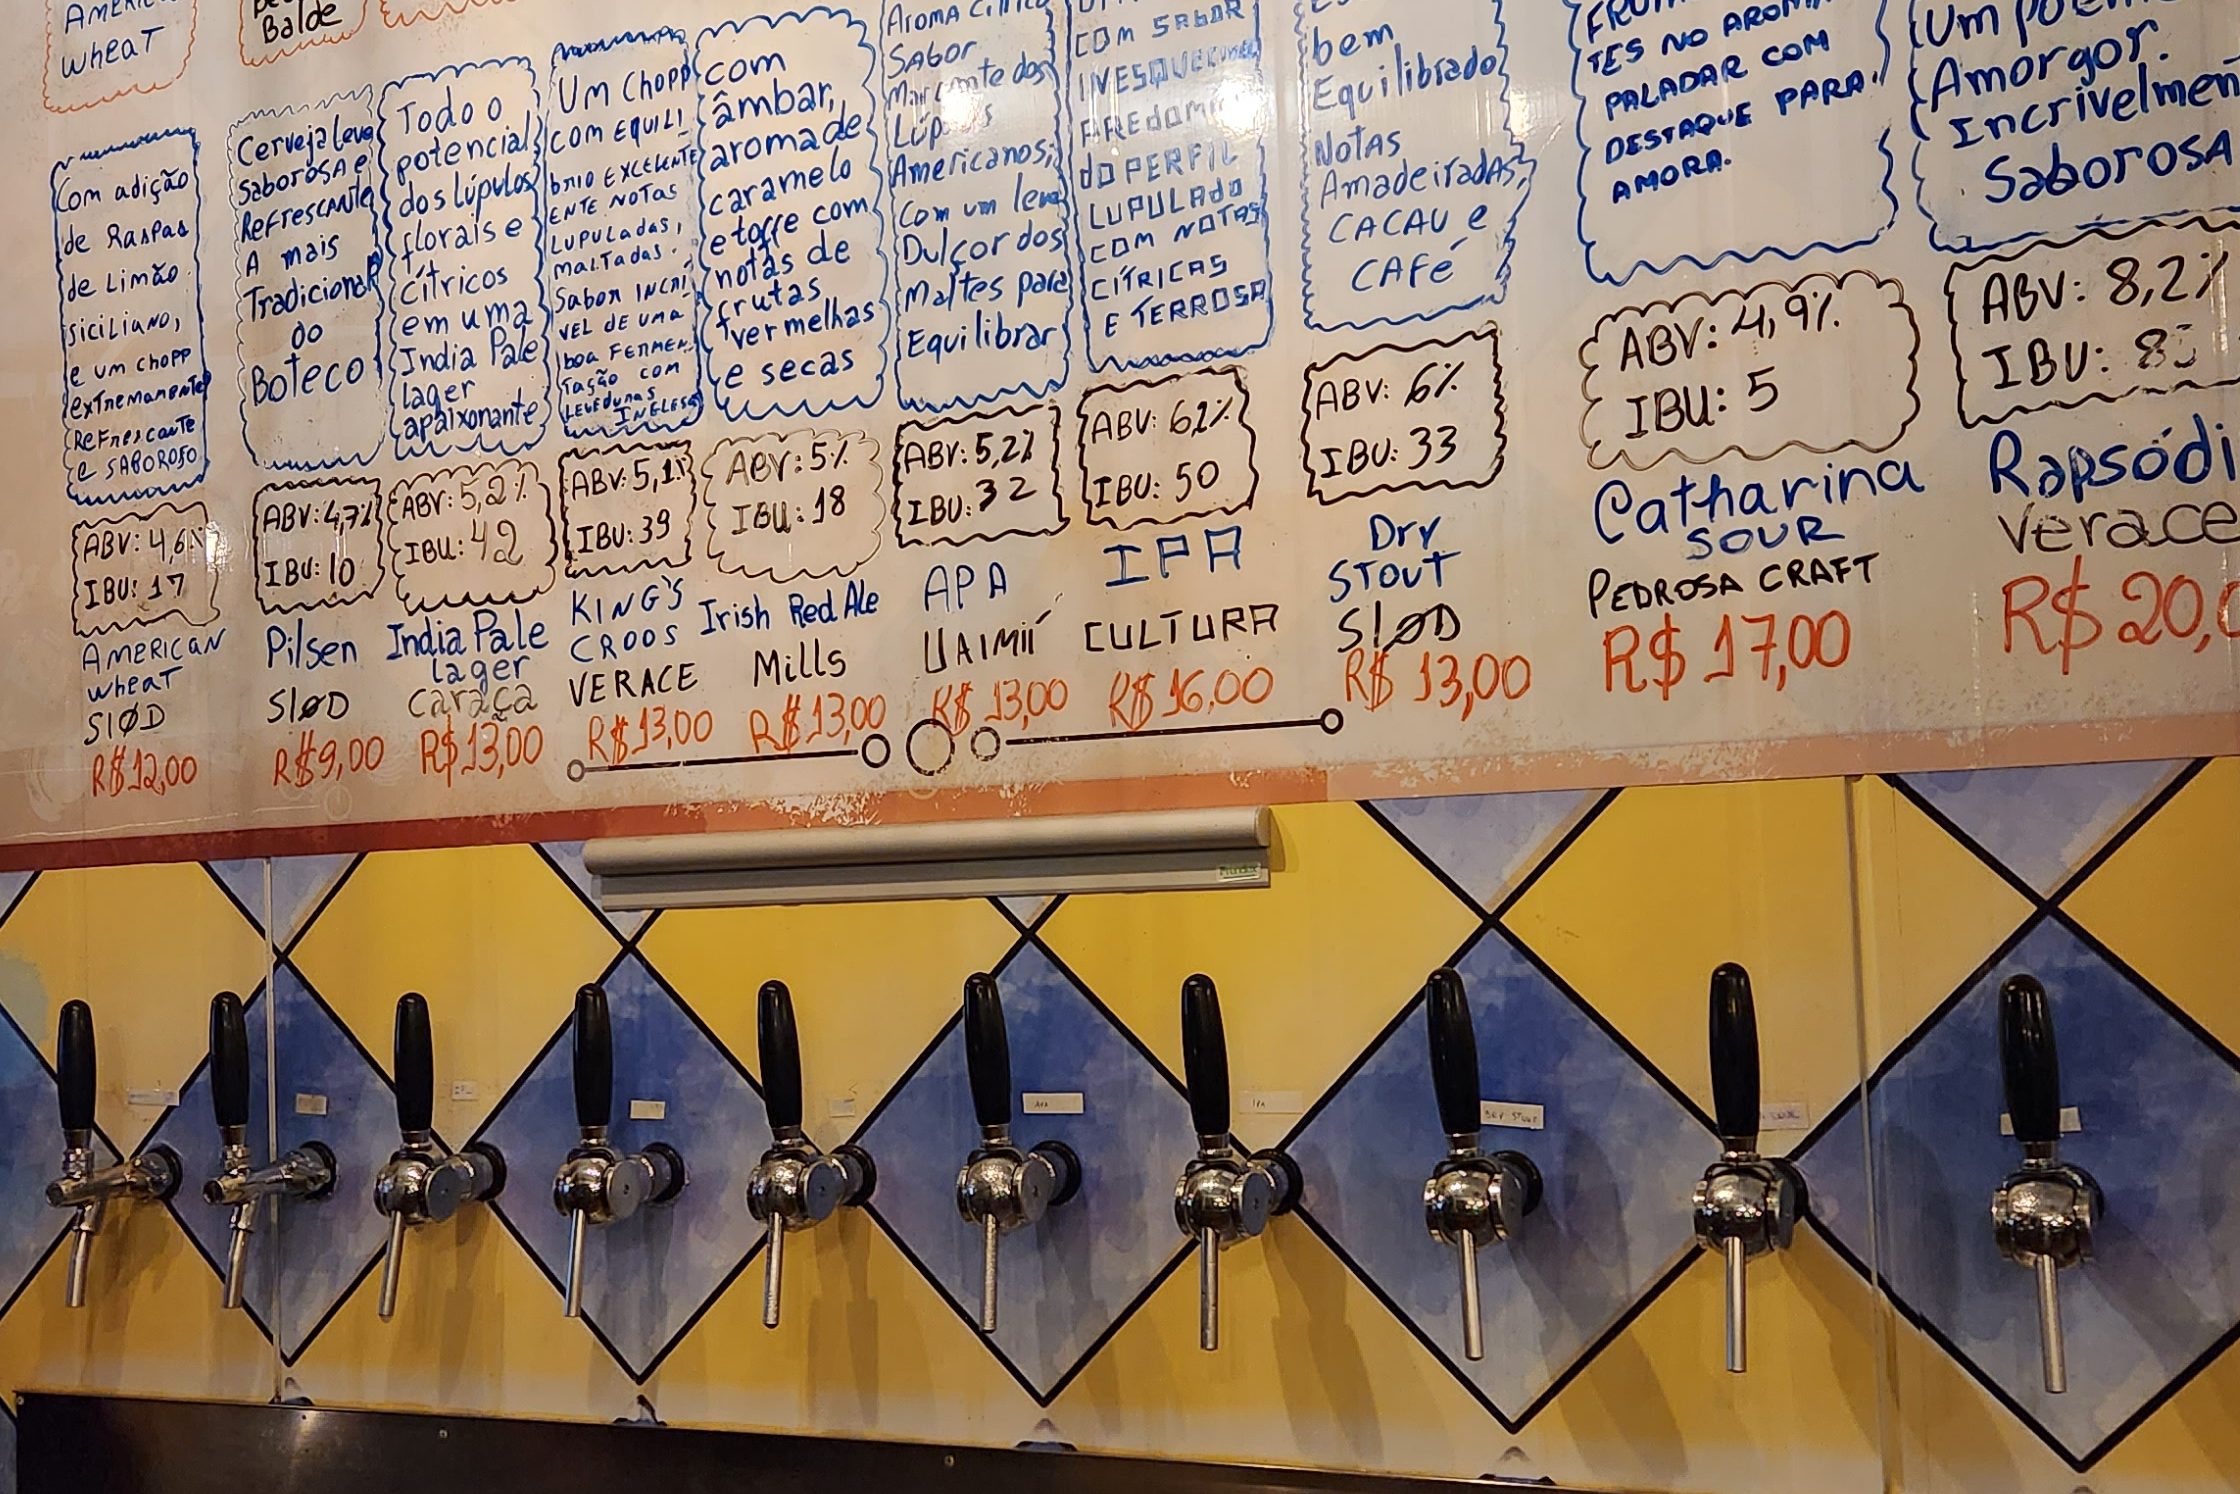 AMERICAN
wheaT
Balde
Com adição
de Raspas
de Limão
siciliano,
e um chopp
extremamente
Refrescante
e SABOROSO
ABV: 4,6%
IBU: 17
AMERICAN
wheaT
SlØD
R$ 12,00
Cerveja leve
Saborosa e
Refrescante
A mais
Tradicional
do
Boteco
ABV: 4,7%
IBU: 10
Pilsen
SlØD
R$ 9,00
Todo o
potencial
dos lúpulos
florais e
cítricos
em uma
India Pale
lager
apaixonante
ABV: 5,2%
IBU: 42
India Pale
lager
caraça
R$ 13,00
Um Chopp
com EQUILÍ
brio EXCELENTE
ENTE NOTAS
LUPULADAS,
MALTADAS.
Sabor INCRÍ
VEL DE UMA
boa FERMEN
TAÇÃO COM
LEVEDURAS
INGLESA
ABV: 5,1%
IBU: 39
KING'S
CROOS
VERACE
R$ 13,00
com
âmbar,
aroma de
caramelo
e toffe com
notas de
frutas
vermelhas
e secas
ABV: 5%
IBU: 18
Irish Red Ale
Mills
R$ 13,00
Aroma Cítrico
Sabor
Marcante dos
Lúpulos
Americanos,
Com um leve
Dulçor dos
Maltes para
Equilibrar
ABV: 5,2%
IBU: 32
APA
UAIMIÍ
R$ 13,00
COM SABOR
PREDOMI
DO PERFIL
LUPULADO
COM NOTAS
CÍTRICAS
E TERROSA
ABV: 6,2%
IBU: 50
IPA
CULTURA
R$ 16,00
bem
Equilibrado
Notas
Amadeiradas,
CACAU e
CAFÉ
ABV: 6%
IBU: 33
Dry
STOUT
SlØD
R$ 13,00
TES NO AROMA
PALADAR COM
DESTAQUE PARA
AMORA.
ABV: 4,9%
IBU: 5
Catharina
SOUR
PEDROSA CRAFT
R$ 17,00
Um poema
Amorgor.
Incrivelmen
Saborosa
ABV: 8,2%
IBU:
Rapsódi
Verace
R$ 20,0
APA
IPA
DRY STOUT